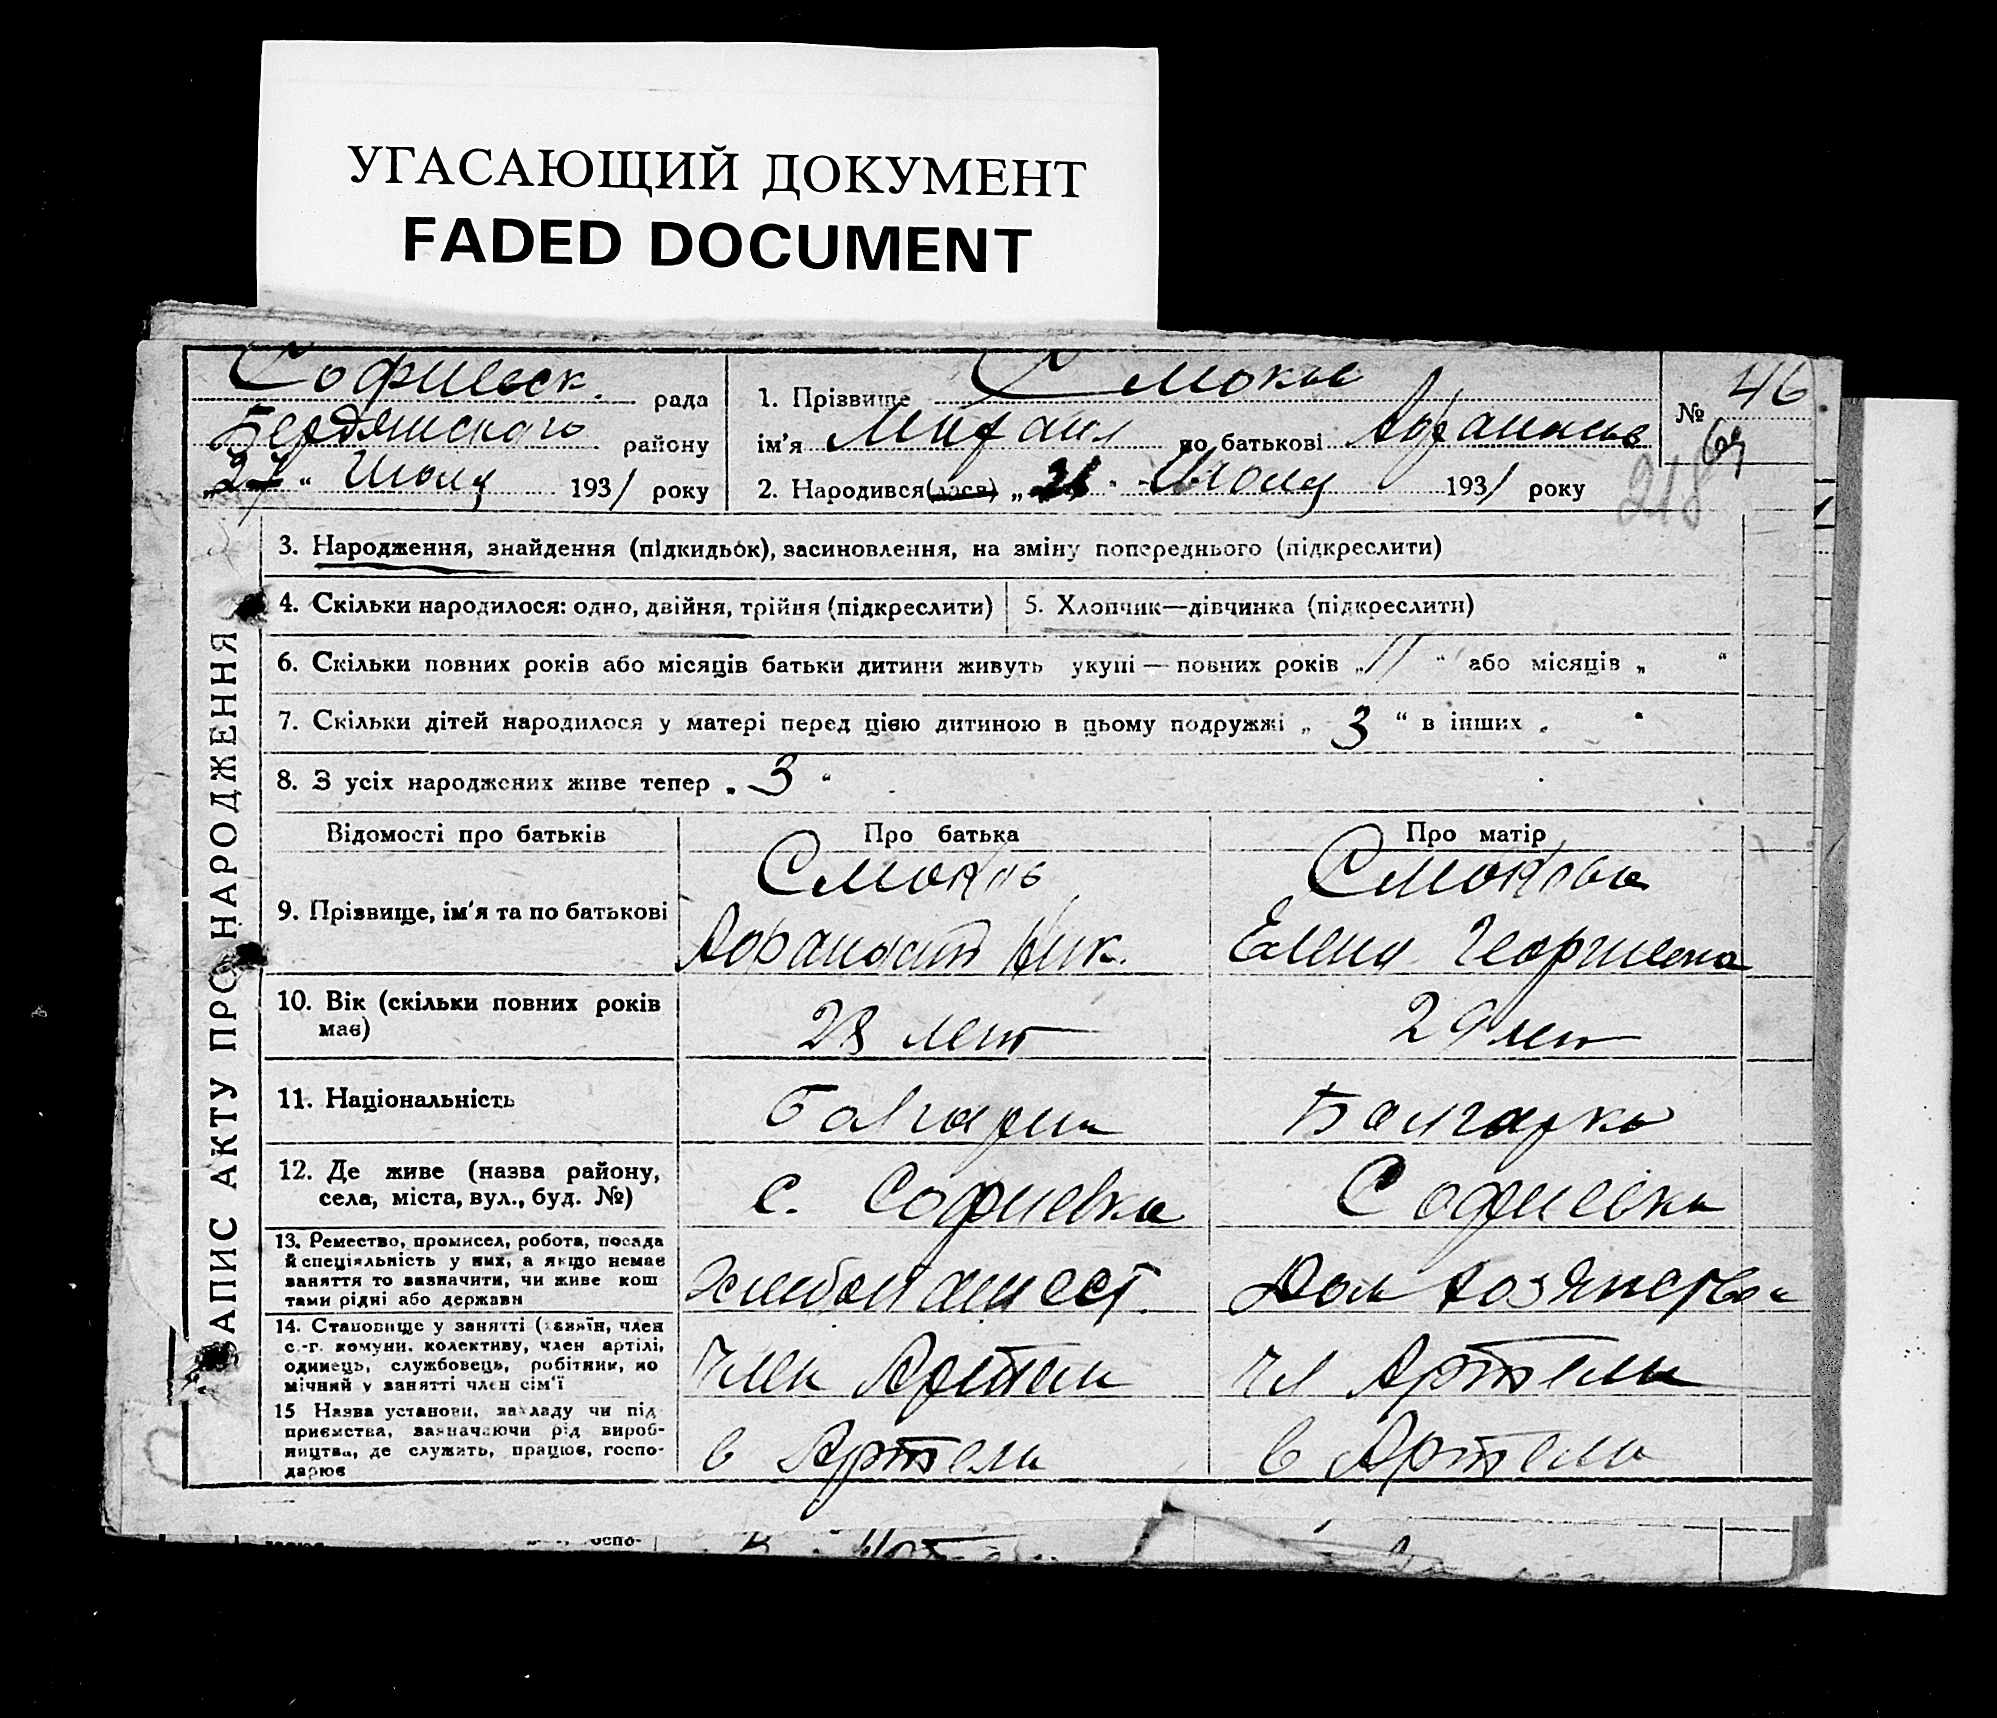 УГАСАЮЩИЙ ДОКУМЕНТ
FADED DOCUMENT
Софиевск. рада
Бердянского району
„27“ Июля 1931 року
1. Прізвище Смоков
№ 46
ім'я Михаил по батькові Афанасьев
2. Народився(лася) „21“ Июля 1931 року
218
ЗАПИС АКТУ ПРО НАРОДЖЕННЯ
3. Народження, знайдення (підкидьок), засиновлення, на зміну попереднього (підкреслити)
4. Скільки народилося: одно, двійня, трійня (підкреслити)
5. Хлопчик—дівчинка (підкреслити)
6. Скільки повних років або місяців батьки дитини живуть укупі — повних років „11“ або місяців „ “
7. Скільки дітей народилося у матері перед цією дитиною в цьому подружжі „ 3 “ в інших „ “
8. З усіх народжених живе тепер „ 3 “
Відомості про батьків
Про батька
Про матір
9. Прізвище, ім'я та по батькові
Смоков
Афанасий Ник.
Смокова
Елена Георгиевна
10. Вік (скільки повних років має)
28 лет
29 лет
11. Національність
Болгарин
Болгарка
12. Де живе (назва району,
села, міста, вул., буд. №)
с. Софиевка
Софиевка
13. Ремество, промисел, робота, посада
й спеціяльність у них, а якщо немає
заняття то зазначити, чи живе кош
тами рідні або держави
Хлебопашест.
Дом хозяйства
14. Становище у занятті (хазяїн, член
с.-г. комуни. колективу, член артілі,
одинець, службовець, робітник, по
мічний у занятті член сім'ї
член Артели
чл Артели
15 Назва установи, закладу чи під
приємства, зазначаючи рід вироб-
ництва, де служить, працює, госпо-
дарює
в Артели
в Артели